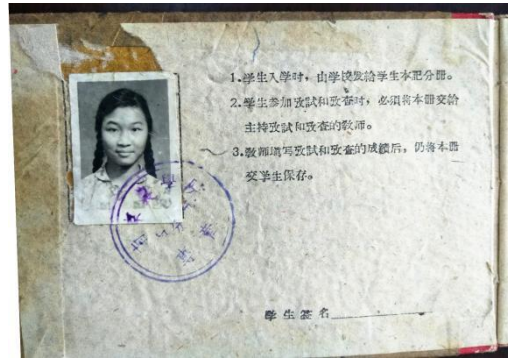 1.学生入学时，由学校发給学生本記分册。
2.学生参加攷試和攷查时，必須将本册交給
主持攷試和攷查的敎师。
3.敎师填写攷試和攷查的成績后，仍将本册
交学生保存。
学生签名